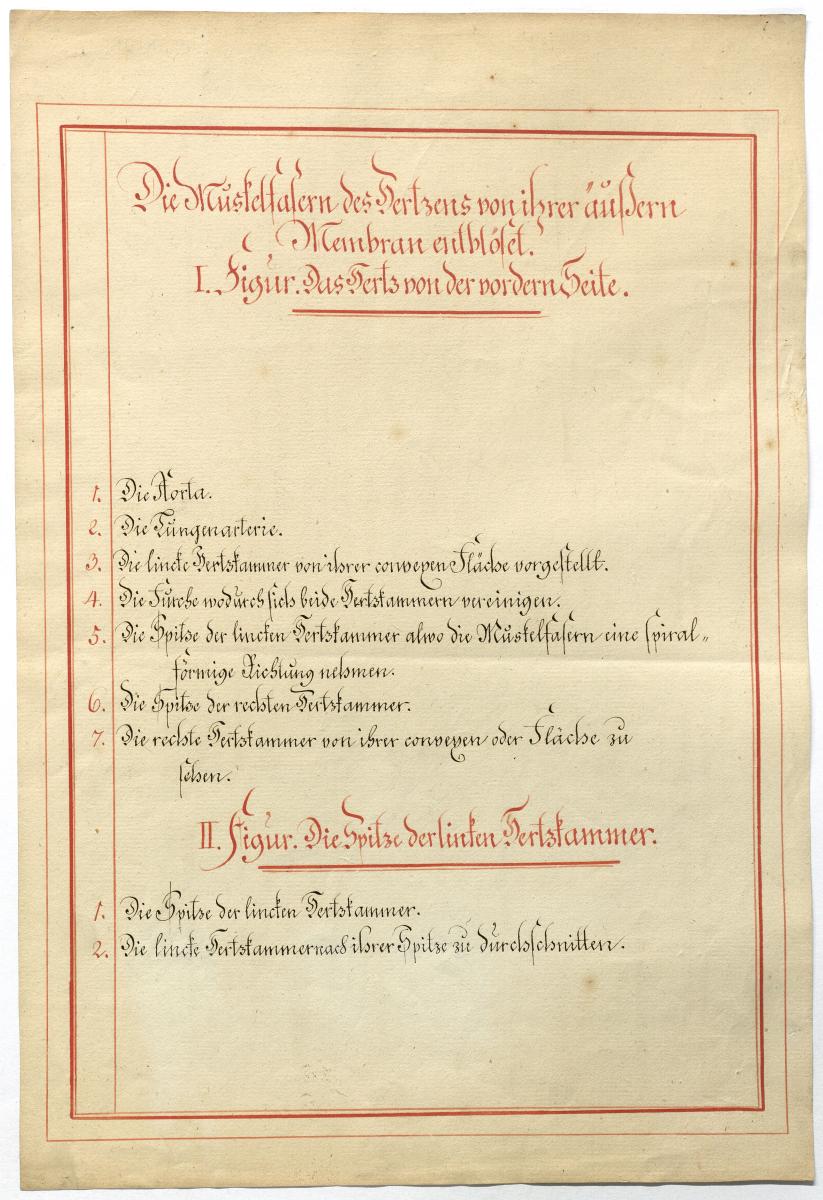 Die Muskelfasern des Hertzens von ihrer äußern
Membran entblöset.
I. Figur. Das Hertz von der vordern Seite.
1. Die Aorta.
2. Die Lungenarterie.
3. Die lincke Hertzkammer von ihrer convexen Fläche vorgestellt.
4. Die Furche wodurch sich beide Hertzkammern vereinigen.
5. Die Spitze der lincken Hertzkammer alwo die Muskelfasern eine spiral„
förmige Richtung nehmen.
6. Die Spitze der rechten Hertzkammer.
7. Die rechte Hertzkammer von ihrer convexen oder Fläche zu
sehen.
II. Figur. Die Spitze der linken Hertzkammer.
1. Die Spitze der lincken Hertzkammer.
2. Die lincke Hertzkammer nach ihrer Spitze zu durchschnitten.